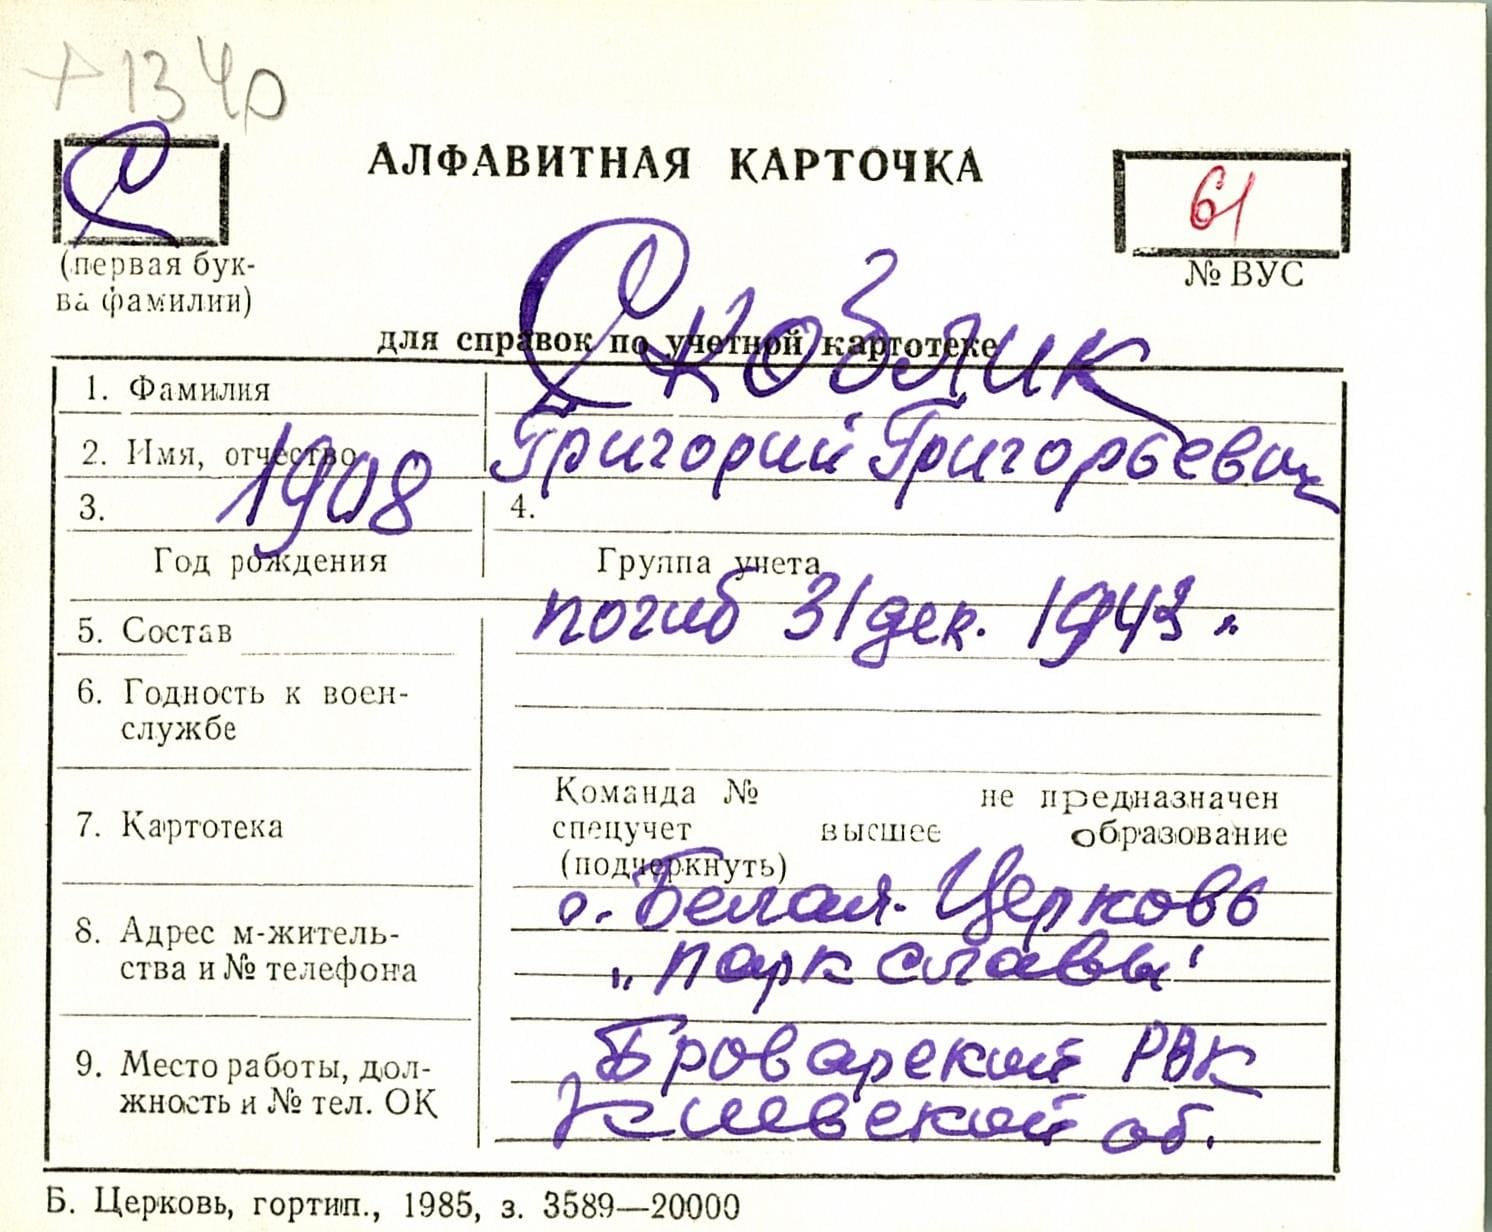 + 1340
С
АЛФАВИТНАЯ КАРТОЧКА
61
(первая бук-
ва фамилии)
№ ВУС
Скоблик
для справок по учетной картотеке
1. Фамилия
2. Имя, отчество
Григорий Григорьевич
3. 1908
4.
Год рождения
Группа учета
5. Состав
погиб 31 дек. 1943 "
6. Годность к воен-
службе
7. Картотека
Команда № не предназначен
спецучет высшее образование
(подчеркнуть)
8. Адрес м-житель-
ства и № телефона
г. Белая-Церковь
"парк славы"
9. Место работы, дол-
жность и № тел. ОК
Броварской РВК
Киевской об.
Б. Церковь, гортип., 1985, з. 3589—20000